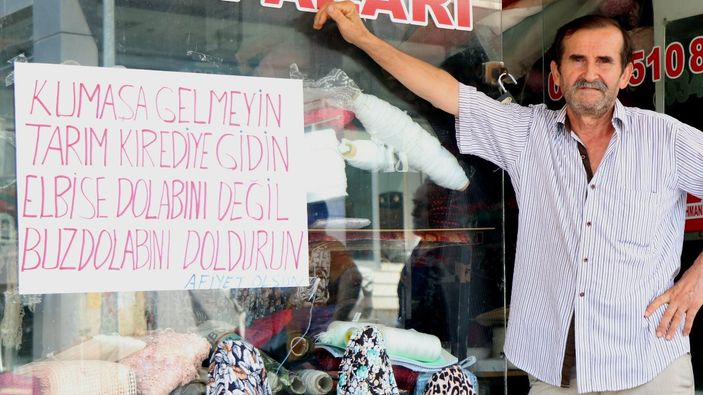 PAZARI
510 8
KUMAŞA GELMEYİN
TARIM KIREDİYE GİDİN
ELBİSE DOLABINI DEĞİL
BUZDOLABINI DOLDURUN
AFİYET OLSUN
HMAN